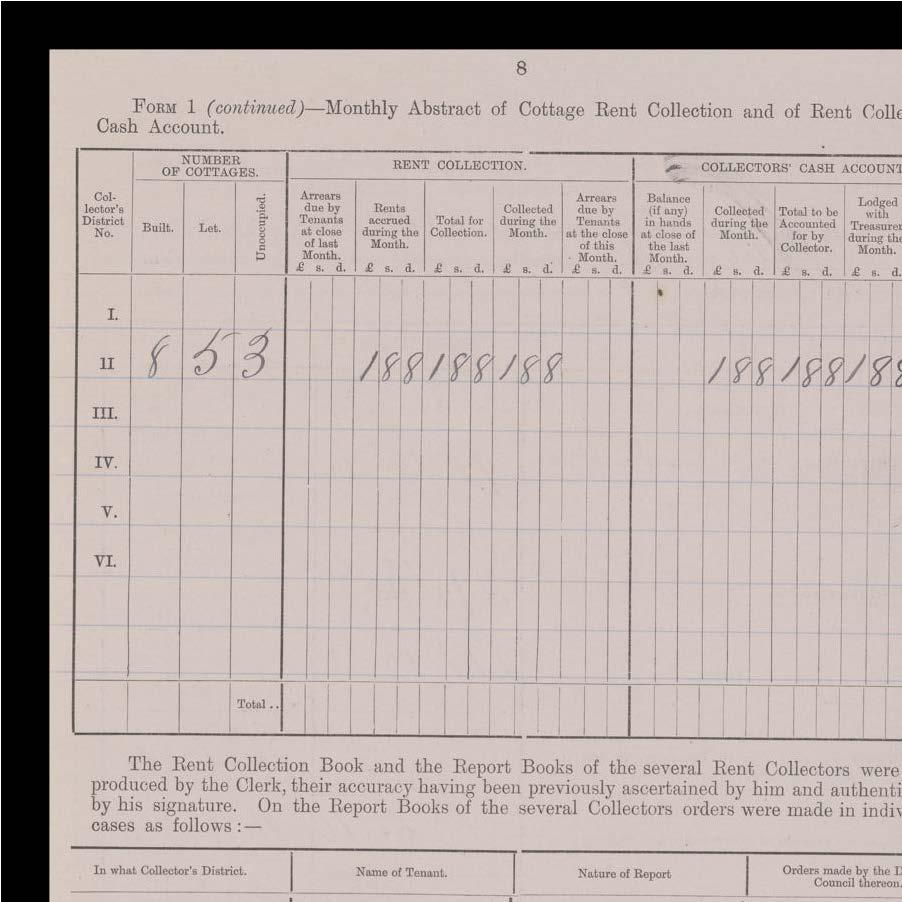 8
FORM 1 (continued)—Monthly Abstract of Cottage Rent Collection and of Rent Colle
Cash Account.
NUMBER OF COTTAGES.
RENT COLLECTION.
COLLECTORS' CASH ACCOUNT
Col-lector's District No.
Built.
Let.
Unoccupied.
Arrears due by Tenants at close of last Month.
Rents accrued during the Month.
Total for Collection.
Collected during the Month.
Arrears due by Tenants at the close of this Month.
Balance (if any) in hands at close of the last Month.
Collected during the Month.
Total to be Accounted for by Collector.
Lodged with Treasurer during the Month.
£ s. d. £ s. d. £ s. d. £ s. d. £ s. d. £ s. d. £ s. d. £ s. d. £ s. d.
I.
II 8 5 3 1 8 8 1 8 8 1 8 8 1 8 8 1 8 8 1 8 8
III.
IV.
V.
VI.
Total ..
The Rent Collection Book and the Report Books of the several Rent Collectors were
produced by the Clerk, their accuracy having been previously ascertained by him and authenti
by his signature. On the Report Books of the several Collectors orders were made in indiv
cases as follows :—
In what Collector's District.
Name of Tenant.
Nature of Report
Orders made by the D
Council thereon.